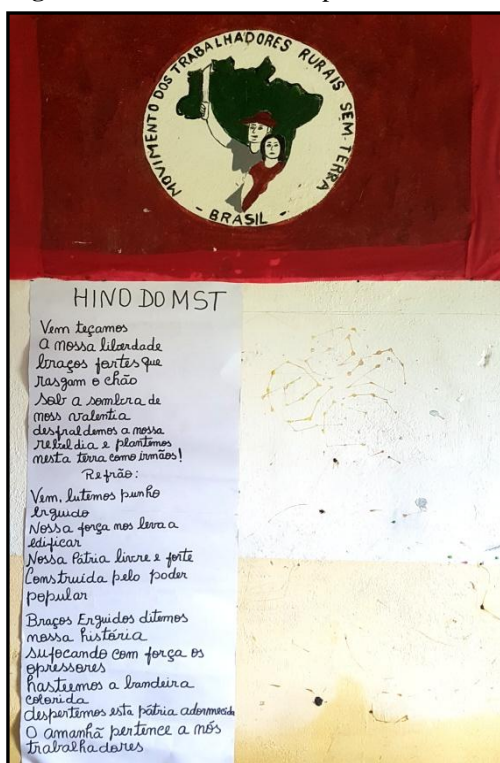 MOVIMENTO DOS TRABALHADORES RURAIS SEM TERRA
- BRASIL -
HINO DO MST
Vem teçamos
a nossa liberdade
braços fortes que
rasgam o chão
sob a sombra de
noss valentia
desfraldemos a nossa
rebeldia e plantemos
nesta terra como irmãos!
Refrão:
Vem, lutemos punho
Erguido
Nossa força nos leva a
edificar
Nossa Pátria livre e forte
Construída pelo poder
popular
Braços Erguidos ditemos
nossa história
sufocando com força os
opressores
hasteemos a bandeira
colorida
despertemos esta pátria adormecida
O amanhã pertence a nós
trabalhadores